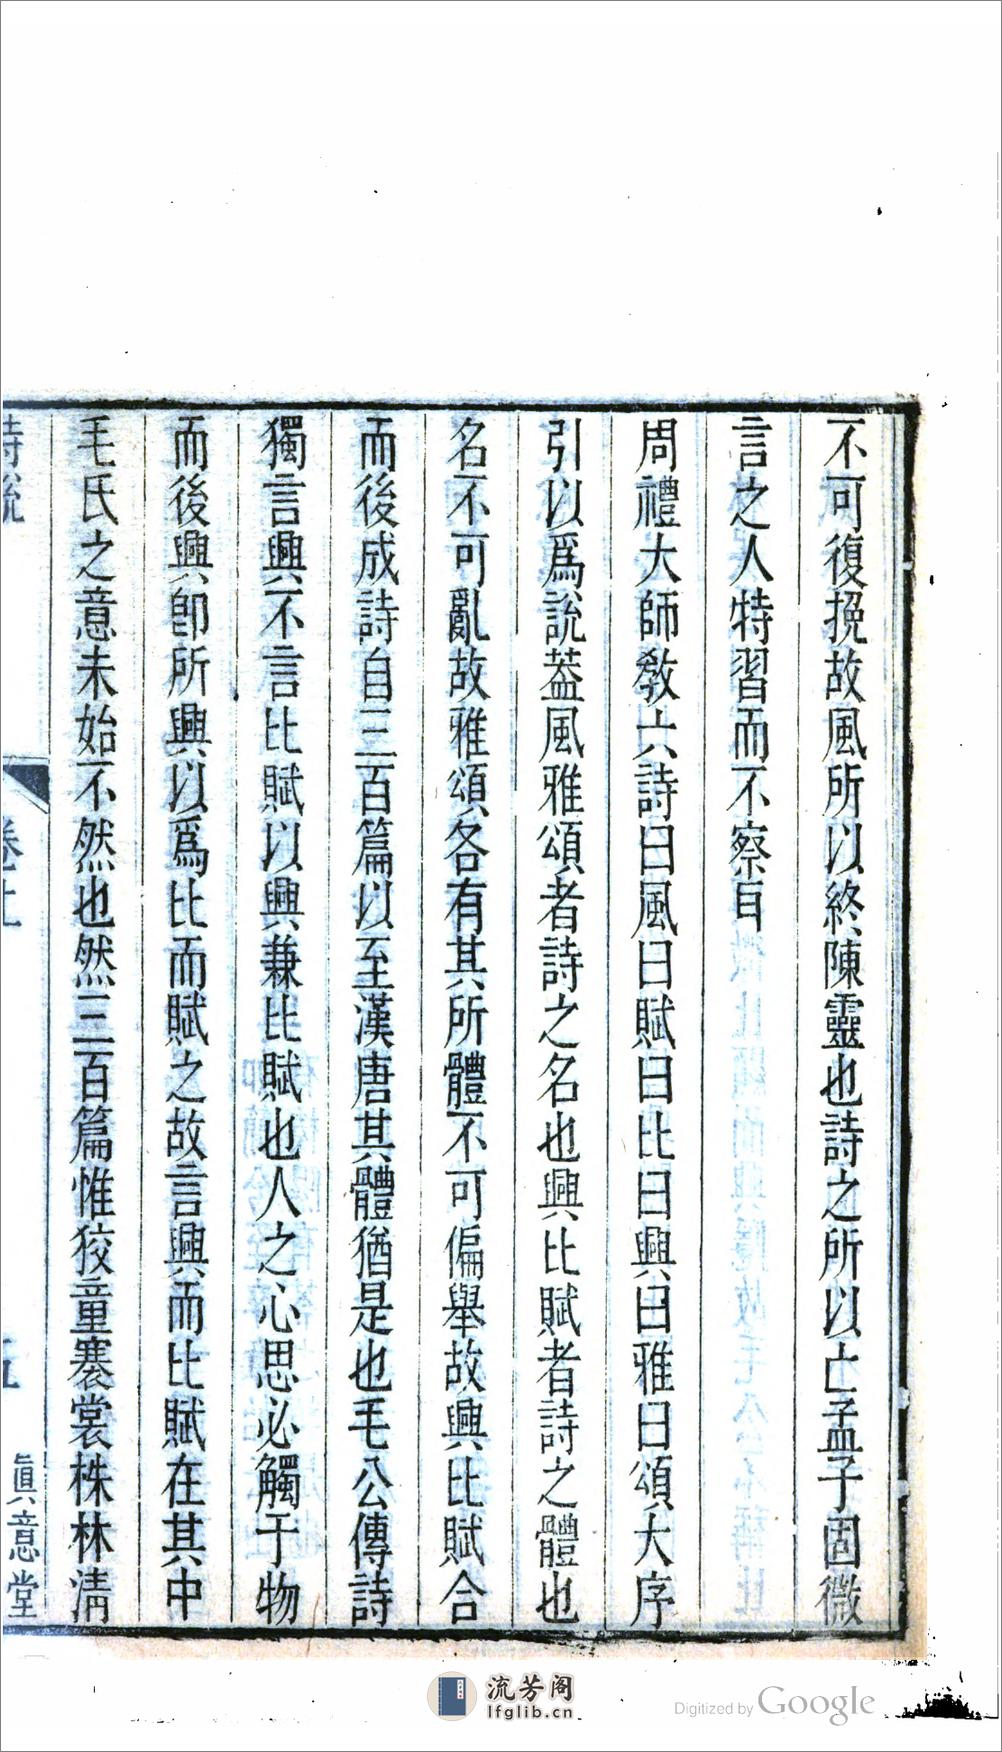 不可復挽故風所以終陳靈也詩之所以亡孟子固微
言之人特習而不察耳
周禮大師敎六詩曰風曰賦曰比曰興曰雅曰頌大序
引以爲說葢風雅頌者詩之名也興比賦者詩之體也
名不可亂故雅頌各有其所體不可偏舉故興比賦合
而後成詩自三百篇以至漢唐其體猶是也毛公傳詩
獨言興不言比賦以興兼比賦也人之心思必觸于物
而後興卽所興以爲比而賦之故言興而比賦在其中
毛氏之意未始不然也然三百篇惟狡童褰裳株林淸
詩說
卷上
五
眞意堂
流芳阁
lfglib.cn
Digitized by Google